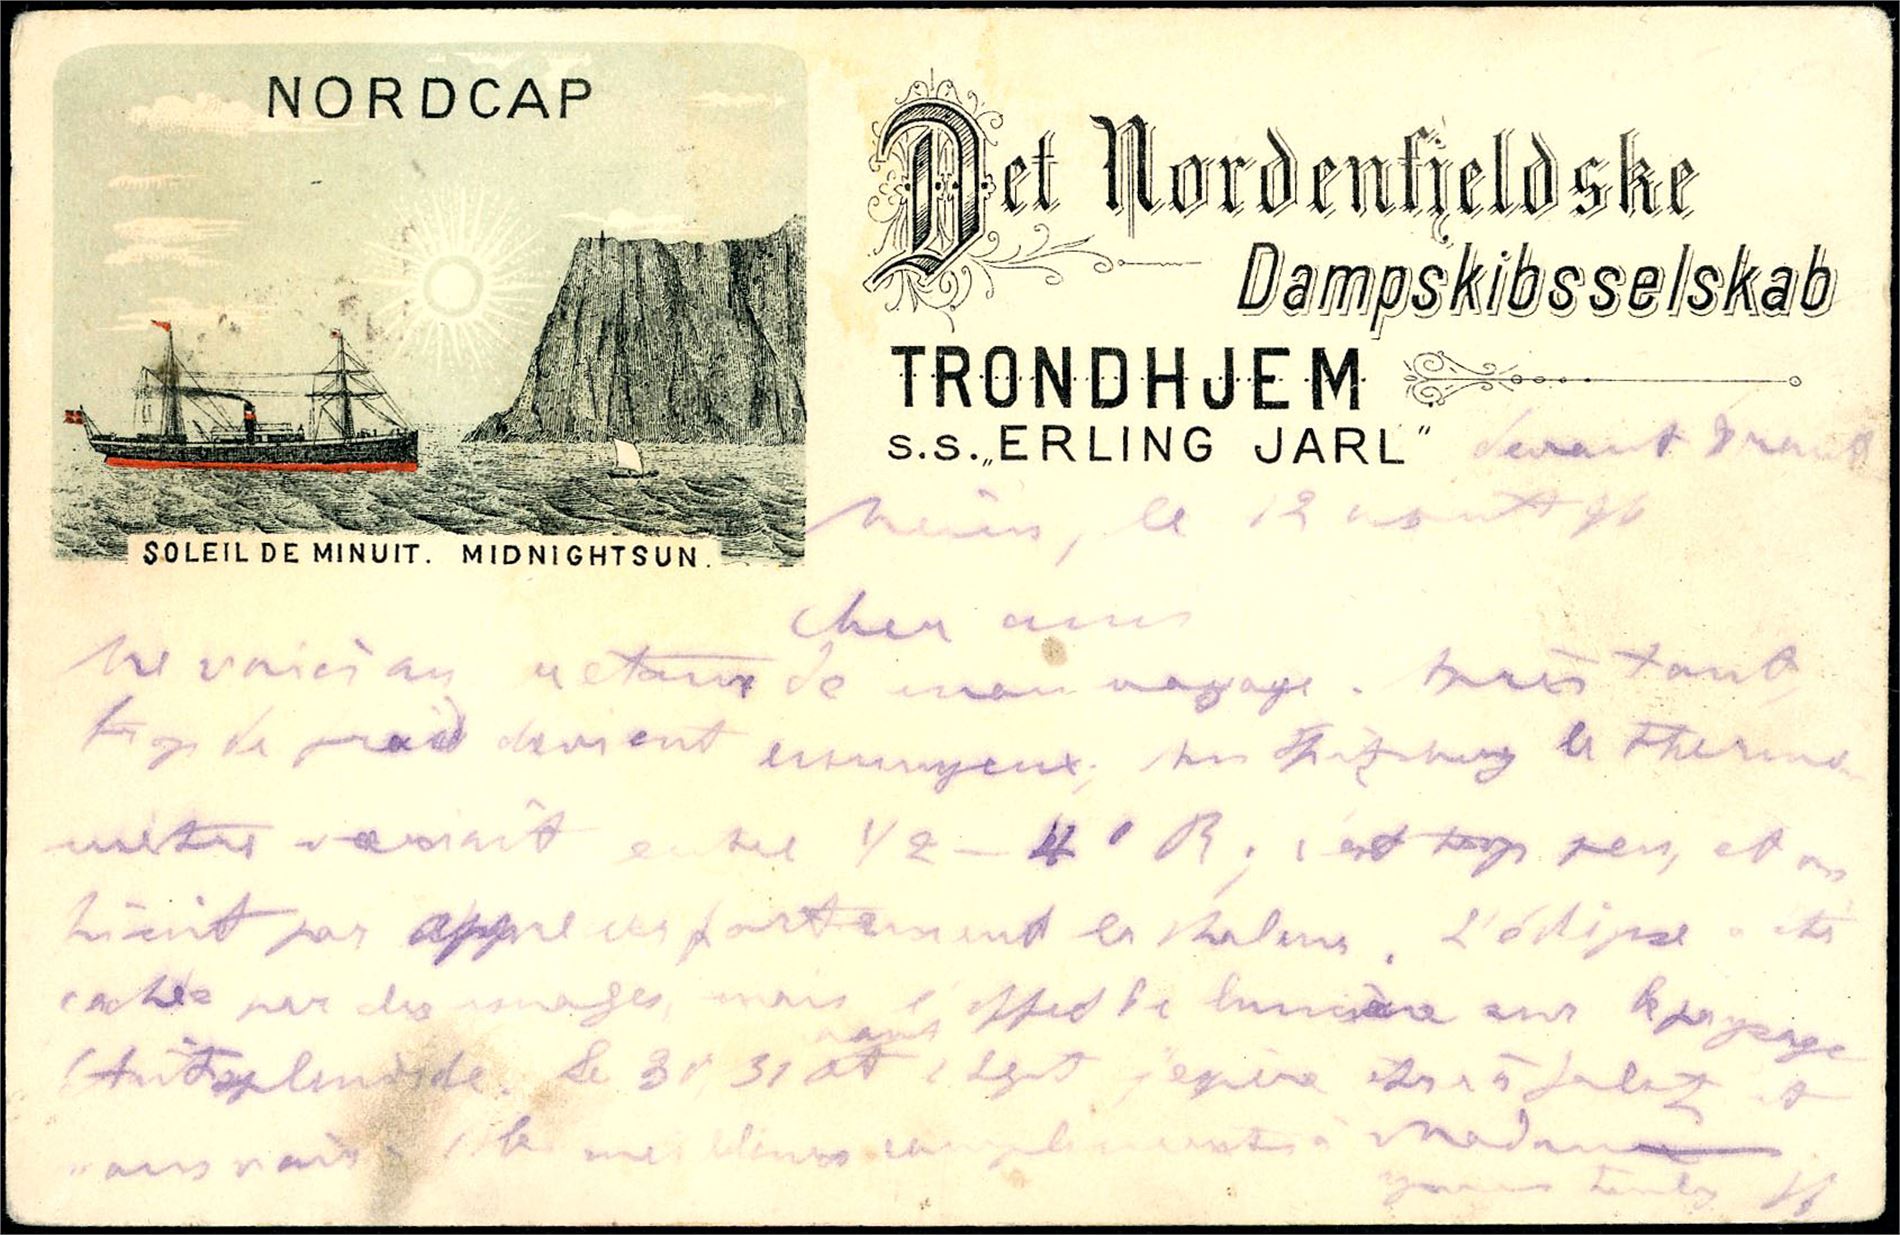 NORDCAP
SOLEIL DE MINUIT. MIDNIGHTSUN.
Det Nordenfjeldske
Dampskibsselskab
TRONDHJEM
s.s. „ERLING JARL"
devant
le 12 août 96
cher ami
Me voici au retour de mon voyage. Mais tant,
trop de froid devient ennuyeux; le thermo-
mètre variait entre 1/2 – 4° R; c'est trop peu, et on
finit par apprécier fortement la chaleur. L'éclipse a été
cachée par des nuages, mais l'effet de lumière sur le paysage
était splendide. Le 30, 31 août j'espère être à et
mes meilleurs compliments à Madame
yours truly